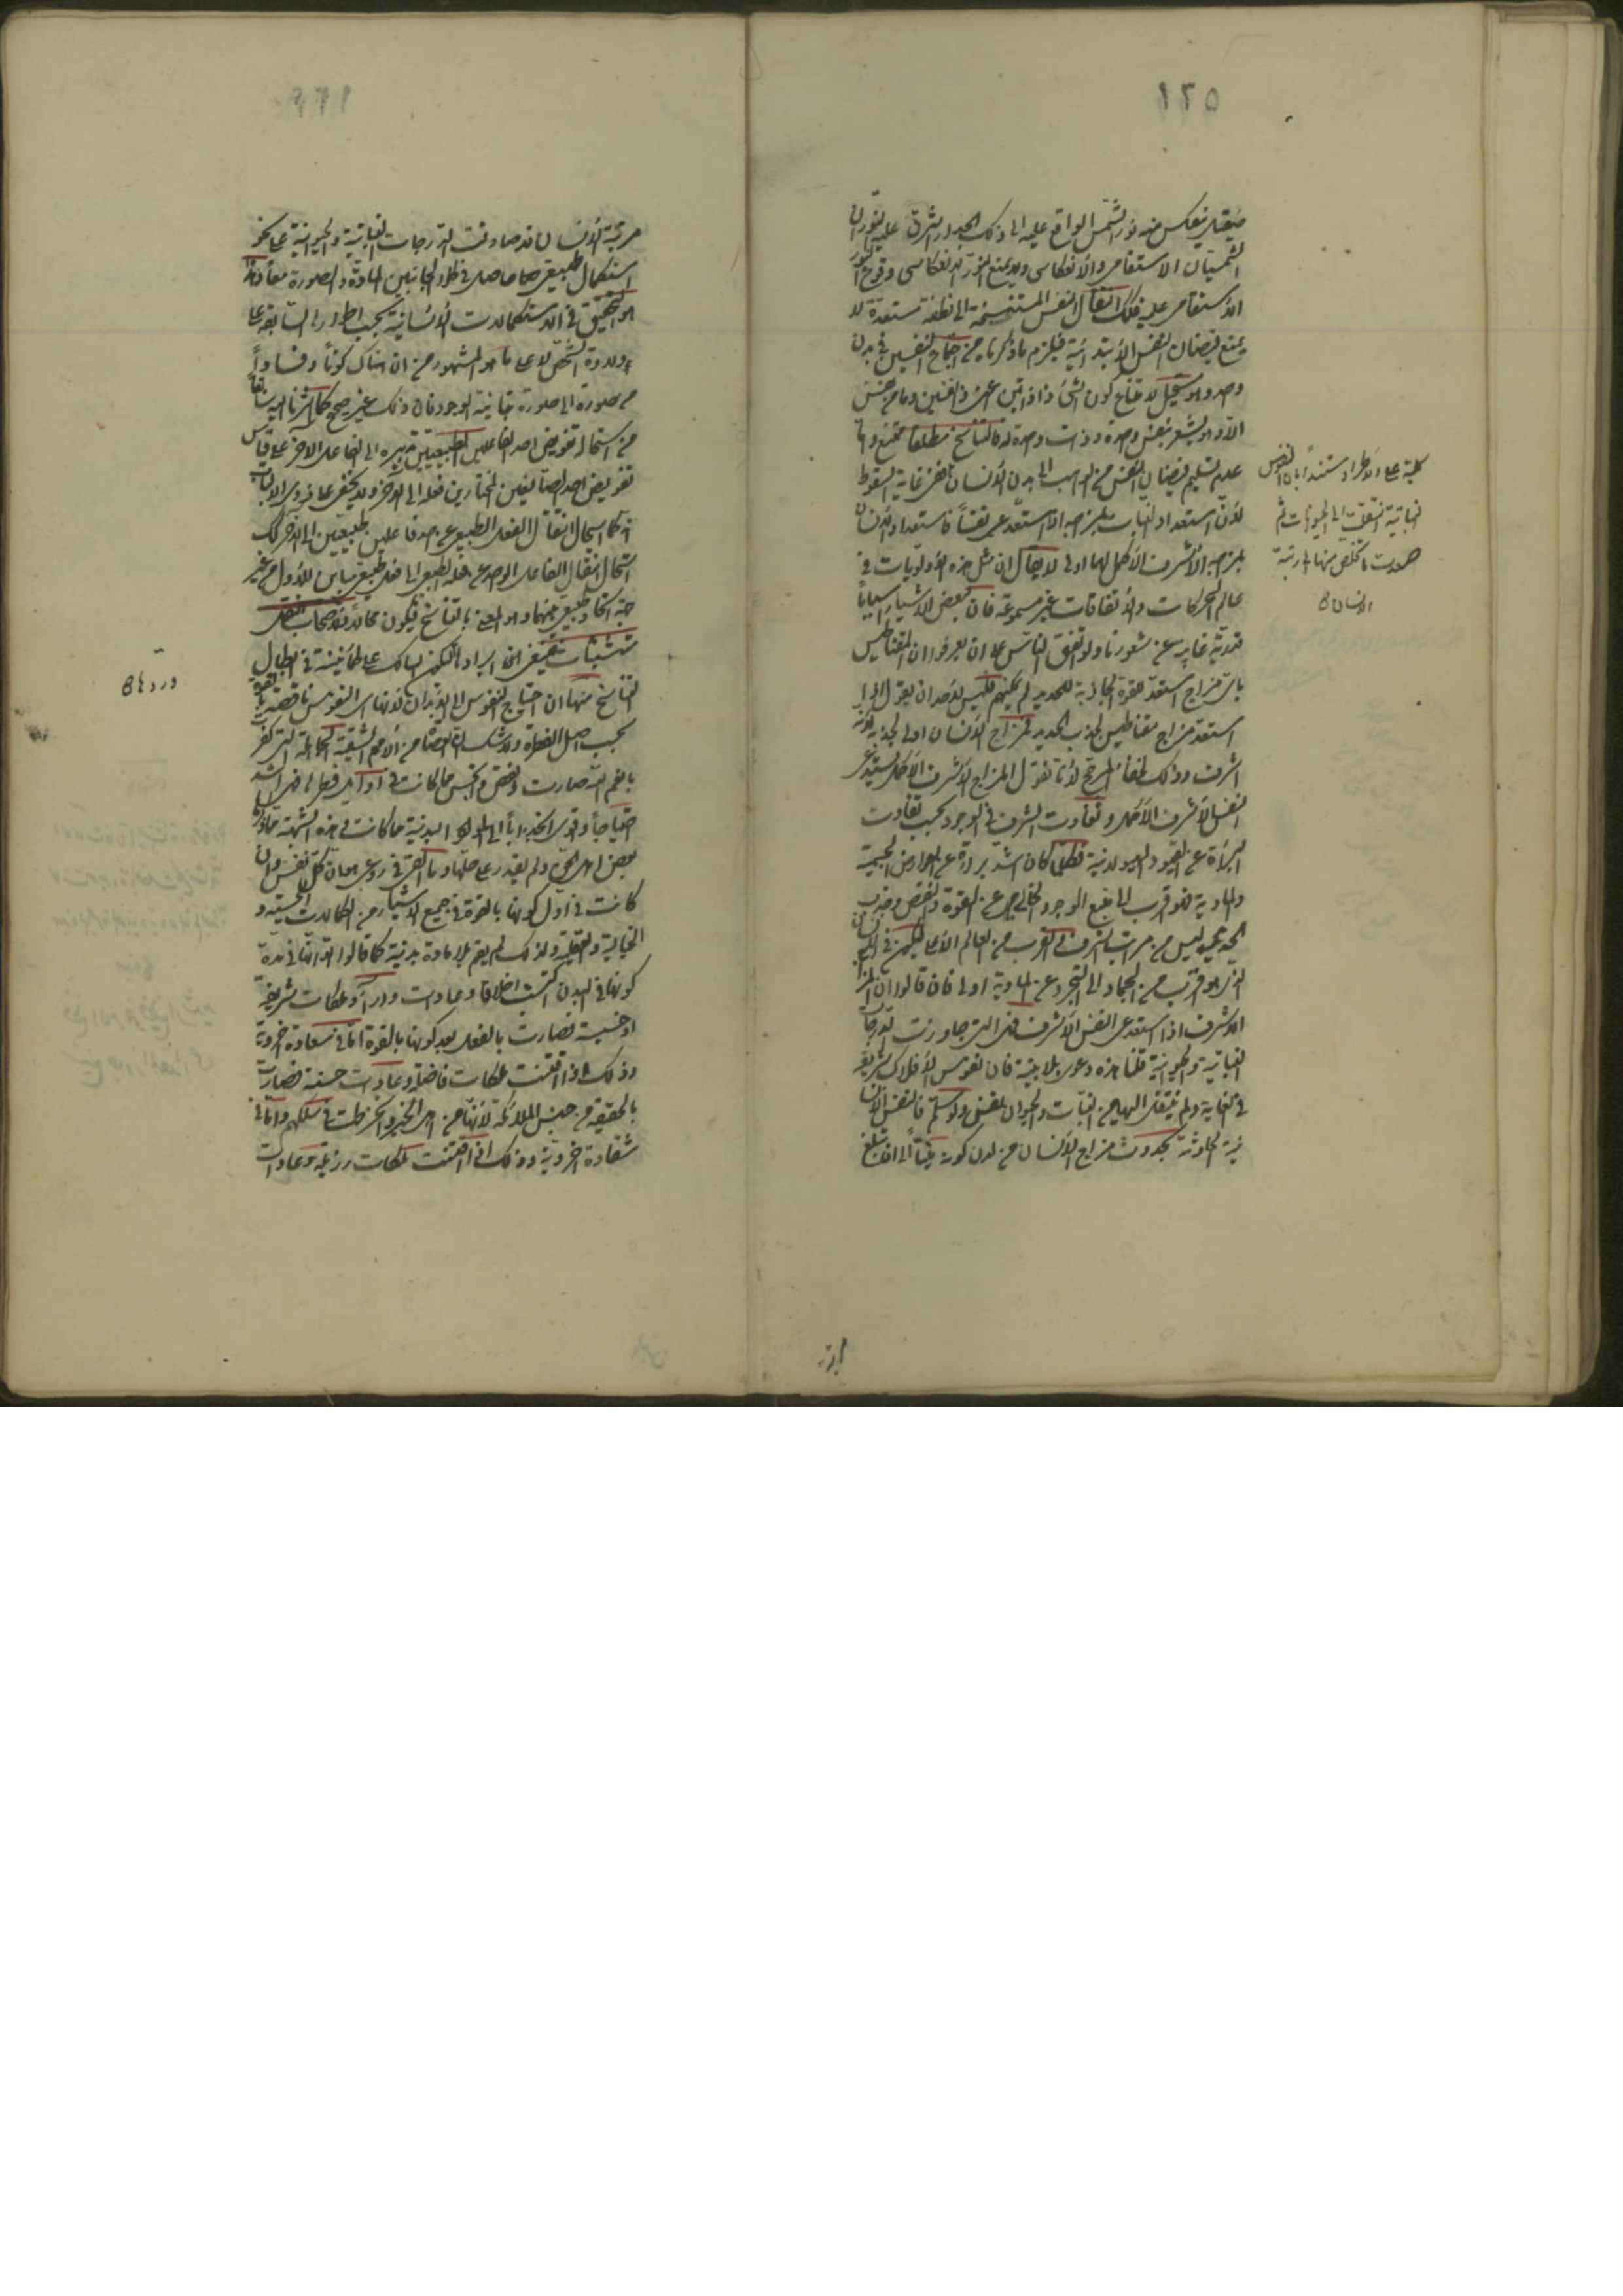 ١٢٥
صيقل ينعكس منه نور الشمس الواقع عليه الى ذلك الجدار اشرق عليه النوران
الشمسيان الاستقامى والأنعكاسى ولا يمنع النور الانعكاسى وقوع النور
الاستقامى عليه فكذلك انتقال النفس المستنسخة الى نطفة مستعدة لا
يمنع فيضان النفس الأبتدائية فيلزم ما ذكرناه من اجتماع النفسين فى بدن
واحد وهو مستحيل لامتناع كون الشئ ذا ذاتين اعنى ذا نفسين وما من شخص
الا وهو يشعر بنفس واحدة وذات واحدة له فالتناسخ مطلقا ممتنع واما
عدم تسليم فيضان النفس من الواهب الى بدن الأنسان ففى غاية السقوط
لأن استعداد النبات بمزاجه اذا استدعى نفساً فاستعداد الأنسان
بمزاجه الأشرف الأكمل لها اولى لا يقال ان مثل هذه الأولويات فى
عالم الحركات والأتفاقات غير مسموعة فان لبعض الأشياء اسباباً
قدرية غايبة عن شعورنا ولو اتفق الناس على ان يعرفوا ان المقناطيس
باى مزاج استعد للقوة الجاذبة للحديد لم يمكنهم فليس لأحد ان يقول اذا
استعد مزاج مقناطيس لجذب الحديد فمزاج الأنسان اولى لجذبه لأنه
اشرف وذلك لخفاء المرجح لأنا نقول المزاج الأشرف الأكمل يستدعى
النفس الأشرف الأكمل وتفاوت الشرف فى الوجود بحسب تفاوت
البراءة عن القيود الهيولانية فكلما كان اشد براءة عن العوارض الجسمية
والمادية فهو اقرب الى منبع الوجود الخالص عن القوة والنقص وجذب
الحديد ليس من مراتب الشرف فى القرب من العالم الأعلى
الذى هو اقرب من الجماد الى التجرد عن المادية اولى فان قالوا ان المزاج
الاشرف اذا استدعى النفس الأشرف فهى التى جاوزت الدرجات
النباتية والحيوانية قلنا هذه دعوى بلا بينة فان نفوس الأفلاك شريفة
فى الغاية ولم ينتقل اليها من النبات والحيوان نفس ولو سلم فالنفس الأنسا
نية الحادثة بحدوث مزاج الأنسان من لدن كونه جنيناً الى ان تبلغ
كلية على الاطراد مستنداً بان النفوس
النباتية انتقلت الى الحيوانات ثم
صعدت ما تخلص منها الى رتبة
الانسان
مرتبة الأنسان قد صادفت الدرجات النباتية والحيوانية على نحو
استكمال طبيعى حاصل فى كلا الجانبين المادة والصورة معاً وهذا
هو التحقيق فى الاستكمالات الأنسانية بحسب اطواره السابقة على
ولادة الشخص لا على ما هو المشهور من ان هناك كوناً وفساداً
من صورة الى صورة مباينة لوجود فان ذلك غير صحيح كما اشرنا اليه سابقاً
من استحالة تفويض احد الفاعلين الطبيعيين تدبيره الى الفاعل الاخر على قياس
تفويض احد الصانعين المختارين فعله الى الاخر ولا يخفى على ذوى الالباب
انه كما استحال انتقال الفعل الطبيعى عن احد فاعلين طبيعيين الى الاخر كذلك
استحال انتقال الفاعل الواحد عن فعله الطبيعى الى فعل طبيعى مباين للأول من غير
جهة اتحاد طبيعى بينهما وهو المعنى بالتناسخ فيكون محالاً
تشبثات
التناسخ منها ان احتياج النفوس الى الأبدان لأنها
بحسب اصل الفطرة ولا شك ان من الأمم الشقية الجاهلة التى كفرت
بانعم الله صارت انقص واخس مما كانت فى اوايل
احتياجاً واقوى انجذاباً الى المواد البدنية مما كانت فى هذه الشبهة مما ذكرها
بعض اهل الحق ولم يقدر على حلها وما القى فى روعى هو ان كل نفس وان
كانت فى اول كونها بالقوة فى جميع الأشياء من الكمالات الحسية و
الخيالية والعقلية ولذلك لم يقم بلا مادة بدنية كما قالوا الا انها فى مدة
كونها فى البدن اكتسبت اخلاقا وعادات وآراء وملكات شريفة
او خسيسة فصارت بالفعل بعد كونها بالقوة اما فى سعادة اخروية
وذلك اذا اقتنت ملكات فاضلة وعادات حسنة فصارت
بالحقيقة من جنس الملائكة لأنها من اهل الخير وانخرطت فى سلكهم واما فى
شقاوة اخروية وذلك اذا اقتنت ملكات رذيلة وعادات